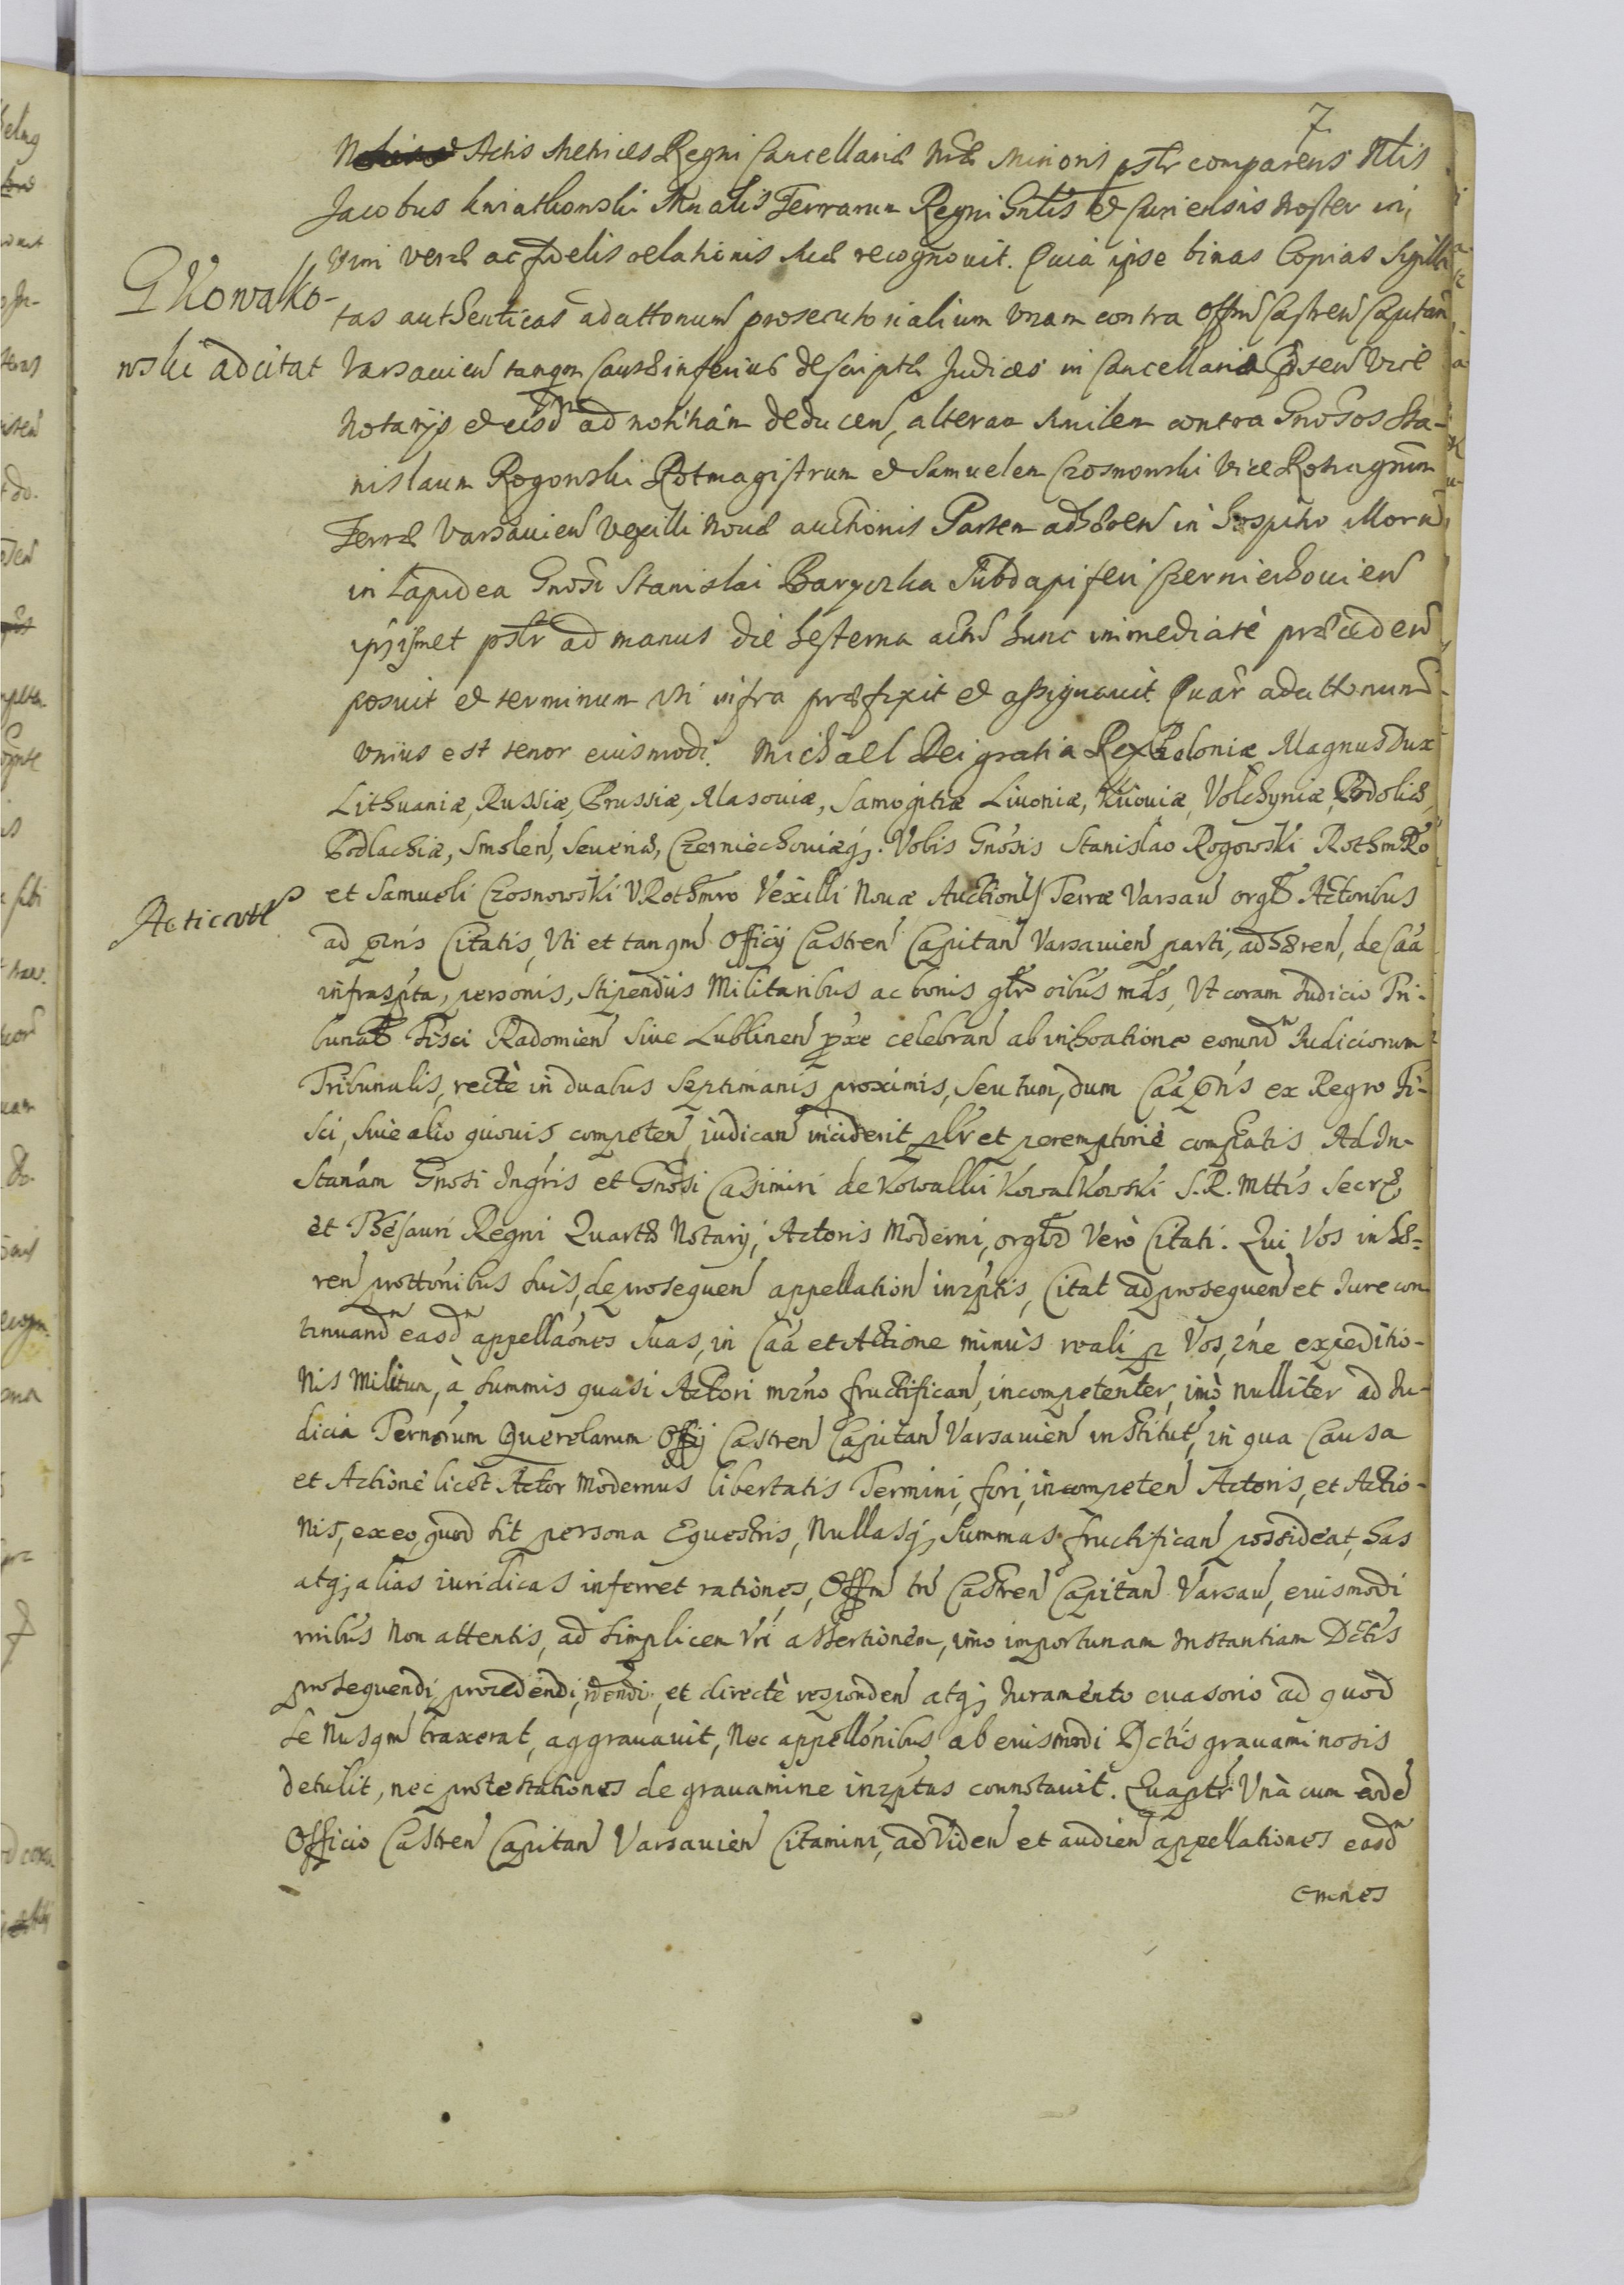 7
Actis Metrices Regni Cancellariæ Nræ Minoris pstr comparens Nblis
Jacobus Kwiatkowski Mnalis Terrarum Regni Gnlis et Curiensis Noster in
Vim veræ ac fidelis relationis suæ recognouit. Quia ipse binas Copias Sigilla
G Kowalko-
tas authenticas adcittonum prosecutorialium vnam contra Offm Castren Capitan
wski adcitat
Varsauien tanqm Causæ inferius descriptæ Judices in Cancellaria Vice
Notarijs et eisd ad notitiam deducen, alteram similem contra Gnosos Sta-
nislaum Rogowski Rotmagistrum et Samuelem Czosnowski Vice Rotmagrum
Terræ Varsauien Vexilli Nouæ auctionis Partem adhæren in hospitio Morn
in Lapidea Gnosi Stanislai Baryczka Subdapiferi Czerniechouien
ipsismet pstr ad manus die hesterna actum hunc immediatè præceden
posuit et terminum vti infra præfixit et assignauit. Quar adcittonum
vnius est tenor eiusmodi. Michael Dei gratia Rex Poloniæ Magnus Dux
Lithuaniæ, Russiæ, Prussiæ, Masouiæ, Samogitiæ Liuoniæ, Kiiouiæ, Volhyniæ, Podoliæ,
Podlachiæ, Smolen, Seueriæ, Czerniechouiæq. Vobis Gnosis Stanislao Rogowski RothmRo
et Samueli Czosnowski VRothmro Vexilli Nouæ Auctionis Terræ Varsau orgl Actoribus
Acticatæ
ad pns Citatis, Vti et tanqm Officij Castren Capitan Varsauien parti, adhæren, de Caa
infraspta, personis, Stipendiis Militaribus ac bonis gtr oibus mds, Vt coram Judicio Tri-
bunal Fisci Radomien Siue Lublinen pxe celebran ab inchoatione eorund Judiciorum
Tribunalis, rectè in duabus Septimanis proximis, Seu tum, dum Caa pns ex Regro Fi-
sci, Siue alio quouis competen iudican inciderit pltr et peremptoriè compeatis Ad In-
stanam Gnosi Ingris et Gnosi Casimiri de Kowallki Kowalkowski S.R.Mttis Secr
et Thesauri Regni Quartæ Notarij, Actoris Moderni, orgld Verò Citati. Qui Vos inhæ-
ren prottonibus Suis, de prosequen appellation inrptis, Citat ad prosequen et Jure con
tinuand easd appellaones Suas, in Caa et Actione minus reali p Vos, rne expeditio-
nis Militum, à Summis quasi Actori mrno fructifican, incompetenter, imò nulliter ad Ju-
dicia Ternorum Querelarum Offij Castren Capitan Varsauien institut, in qua Causa
et Actione licet Actor Modernus libertatis Termini, fori, incompeten Actoris, et Actio-
nis, ex eo, quod sit persona Equestris, Nullasq Summas fructifican possideat, has
atq alias iuridicas inferret rationes, Offm tn Castren Capitan Varsau, eiusmodi
rnibus Non attentis, ad Simplicem Vri assertionem, imo importunam Instantiam Dctis
prosequendi, procedendi, rndendi, et directè responden atq Juramento euasorio ad quod
Se Nusqm traxerat, aggrauauit, Nec appellonibus ab eiusmodi Dctis grauaminosis
detulit, nec protestationes de grauamine inrptas connotauit. Quaptr Vnà cum eode
Officio Castren Capitan Varsauien Citamini, ad Viden et audien appellationes easd
omnes